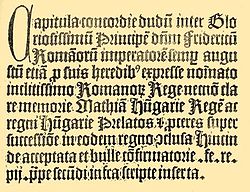 Capitula concordie dudū inter Glo
riosissimū Principē dn̄m Fridericū
Romānoꝝ imperatorē semꝑ augu
stū etiā ꝓ suis heredibꝰ expresse noīato
inclitissimo Romanoꝝ Rege necnō cla
re memorie Mathiā Hūgarie Regē ac
regni Hūgarie Prelatos ⁊ ꝓceres super
successiōe in eodem regno ꝯclusa Hincin
de acceptata et bulle cōfirmatorie fe. re.
pij. ꝑpe secūdi infra scripte inserta.